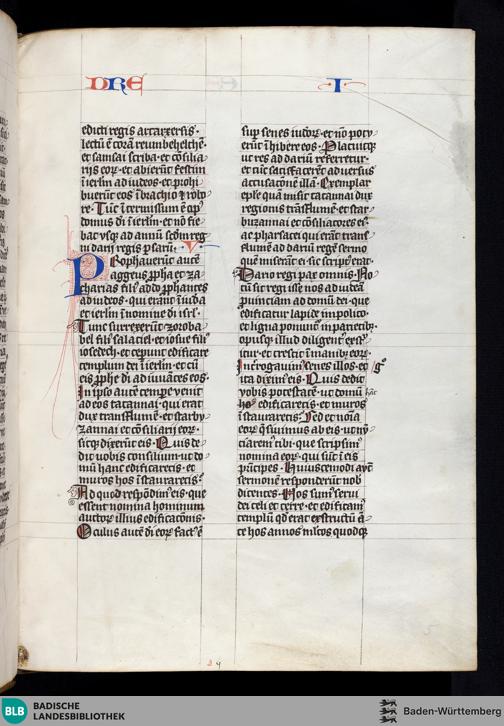 DRE I
edicti regis artarxersis·
lectū ē corā reum beelchē·
et samsai scriba· et cōsilia
rijs eor̄· et abierūt festini
ī ierlm̄ ad iudeos· et prohi
buerūt eos ī brachio ⁊ robo
re· Tūc ītermissum ē op̄
domus dī ī ierlm̄· et nō fie
bat vsq; ad annū scd̄m reg
ni darij regis psarū· V
Prophauerūt autē
aggeus ꝓpha et za
charias filiꝰ addo ꝓphantes
ad iudeos· qui erant ī iuda
et ierlm̄ ī nomine dī isrl̄·
Tunc surrexerūt zoroba
bel filiꝰ salatiel· et iosue filiꝰ
iosedech· et ceperūt edificare
templum dei ī ierlm̄· et cū
eis ꝓphe dī adiuuātes eos·
In ipō autē tempe venit
ad eos tatannai· qui erat
dux trans flumē· et starby
zannai et cōsiliarij eor̄·
sicq; dixerūt eis· Quis de
dit uobis consilium· ut do
mū hanc edificaretis· et
muros hos īstauraretis·
Ad quod respōdimꝰ eis· que
essent nomina hominum
auctor̄ illius edificacōnis·
Oculus autē dī eor̄ factꝰ ē
sup senes iudeor̄· et nō potu
erūt īhibere eos· Placuitq;
ut res ad dariū referretur·
et tūc satisfacerēt aduersus
accusacōnē illā· Exemplar
epl̄e quā misit tatannai dux
regionis trās flumē· et star
buzannai et cōsiliatores eiꝰ
arphasacei qui erāt trans
flumē ad dariū regē· sermo
quē miserāt ei· sic scriptꝰ erat·
Dario regi pax omnis· No
tū sit regi isse nos ad iudeā
ꝓuinciam ad domū dei· que
edificatur lapide impolito·
et ligna ponunt̄ in parietibꝫ·
opusq; illud diligent̄ exst̄
itur· et crescit ī manibꝫ eor̄·
Interrogauimꝰ senes illos· et g̊
ita diximꝰ eis· Quis dedit
vobis potestatē· ut domū hāc
edificaretis· et muros
īstauraretis· Sed et noīa
eor̄ q̄siuimus ab eis· ut nū
ciaremꝰ tibi· que scripsimꝰ
nomina eor̄· qui sūt ī eis
pūcipes· Huiuscemodi autē
sermonē responderūt nob̄
dicentes· Nos sumꝰ serui
dei celi et terre· et edificamꝰ
templū qd̄ erat exstructū ā
te hos annos ml̄tos quodq;
BLB BADISCHE
LANDESBIBLIOTHEK
Baden-Württemberg